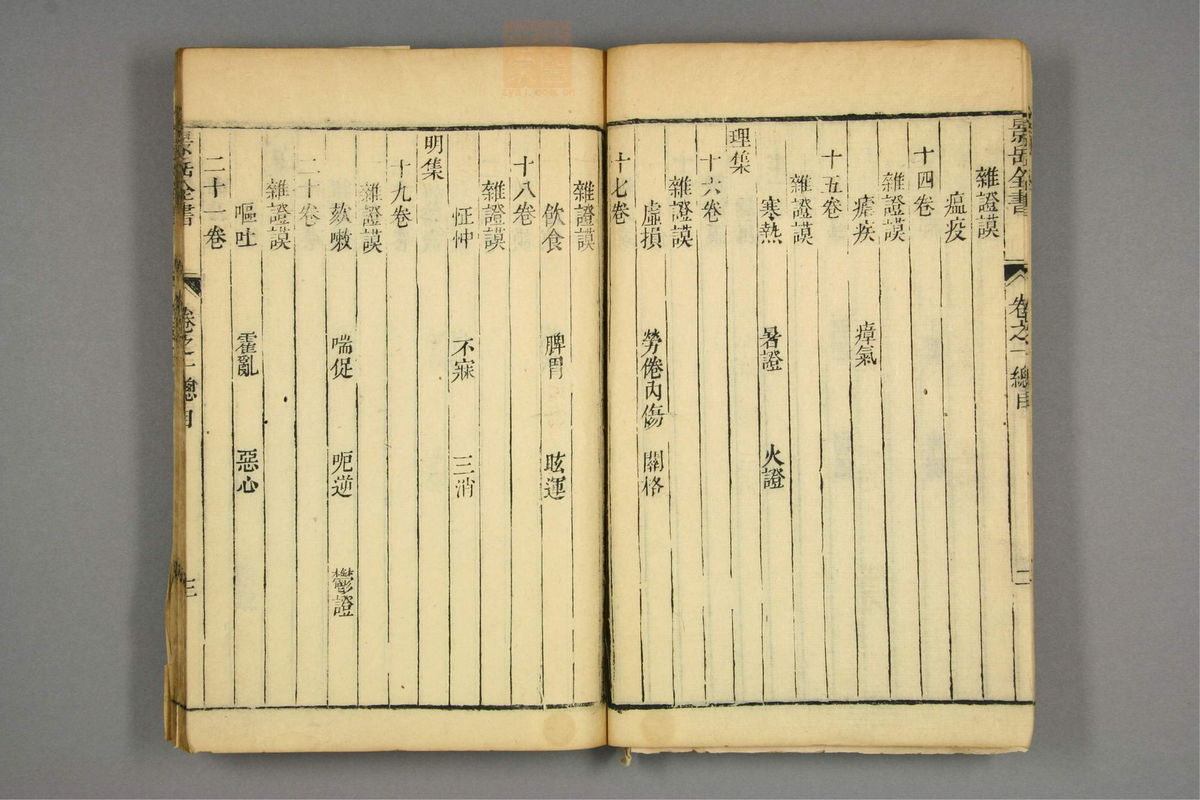 景岳全書 卷之一總目 二
雜證謨
瘟疫
十四卷
雜證謨
瘧疾 瘴氣
十五卷
雜證謨
寒熱 暑證 火證
理集
十六卷
雜證謨
虛損 勞倦內傷 關格
十七卷
雜證謨
飲食 脾胃 眩運
十八卷
雜證謨
怔忡 不寐 三消
明集
十九卷
雜證謨
欬嗽 喘促 呃逆 鬱證
二十卷
雜證謨
嘔吐 霍亂 惡心
二十一卷
景岳全書 卷之一總目 三